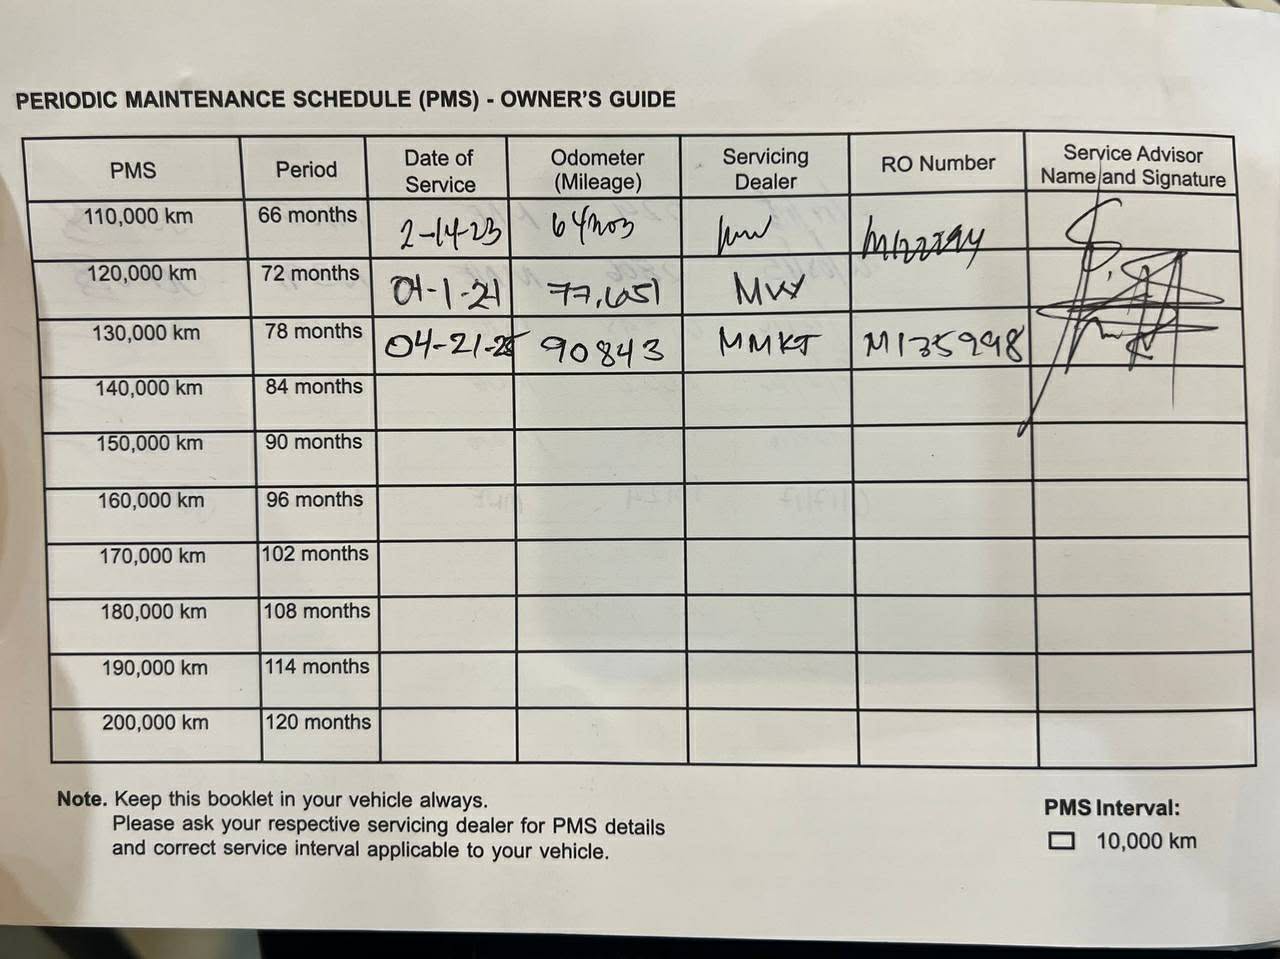 PERIODIC MAINTENANCE SCHEDULE (PMS) - OWNER'S GUIDE
PMS Period Date of Service Odometer (Mileage) Servicing Dealer RO Number Service Advisor Name and Signature
110,000 km 66 months 2-14-23
120,000 km 72 months 77,651
130,000 km 78 months 04-21-25 90843 MMKT M135998
140,000 km 84 months
150,000 km 90 months
160,000 km 96 months
170,000 km 102 months
180,000 km 108 months
190,000 km 114 months
200,000 km 120 months
Note. Keep this booklet in your vehicle always.
Please ask your respective servicing dealer for PMS details
and correct service interval applicable to your vehicle.
PMS Interval:
10,000 km